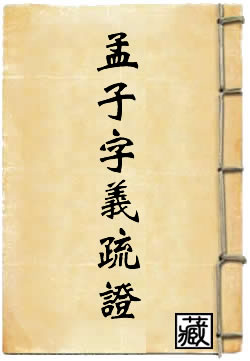 孟子字義疏證
藏